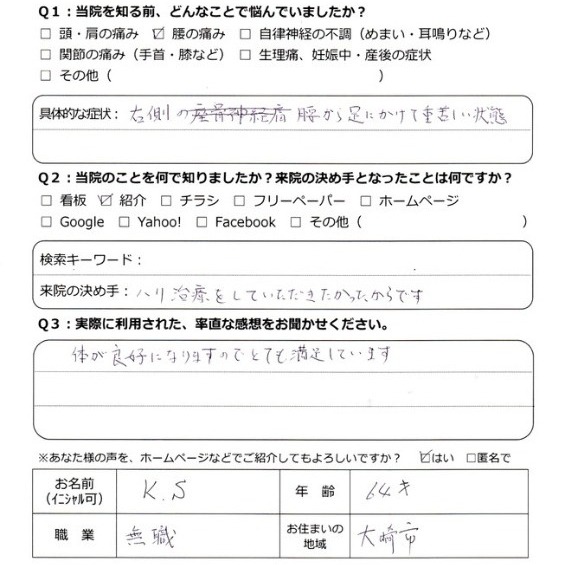 Q1：当院を知る前、どんなことで悩んでいましたか？
□ 頭・肩の痛み ☑ 腰の痛み □ 自律神経の不調（めまい・耳鳴りなど）
□ 関節の痛み（手首・膝など） □ 生理痛、妊娠中・産後の症状
□ その他（ ）
具体的な症状： 右側の座骨神経痛 腰から足にかけて重苦しい状態
Q2：当院のことを何で知りましたか？来院の決め手となったことは何ですか？
□ 看板 ☑ 紹介 □ チラシ □ フリーペーパー □ ホームページ
□ Google □ Yahoo! □ Facebook □ その他（ ）
検索キーワード：
来院の決め手： ハリ治療をしていただきたかったからです
Q3：実際に利用された、率直な感想をお聞かせください。
体が良好になりますのでとても満足しています
※あなた様の声を、ホームページなどでご紹介してもよろしいですか？ ☑はい □匿名で
お名前（ｲﾆｼｬﾙ可） K.S 年 齢 64才
職 業 無職 お住まいの地域 大崎市